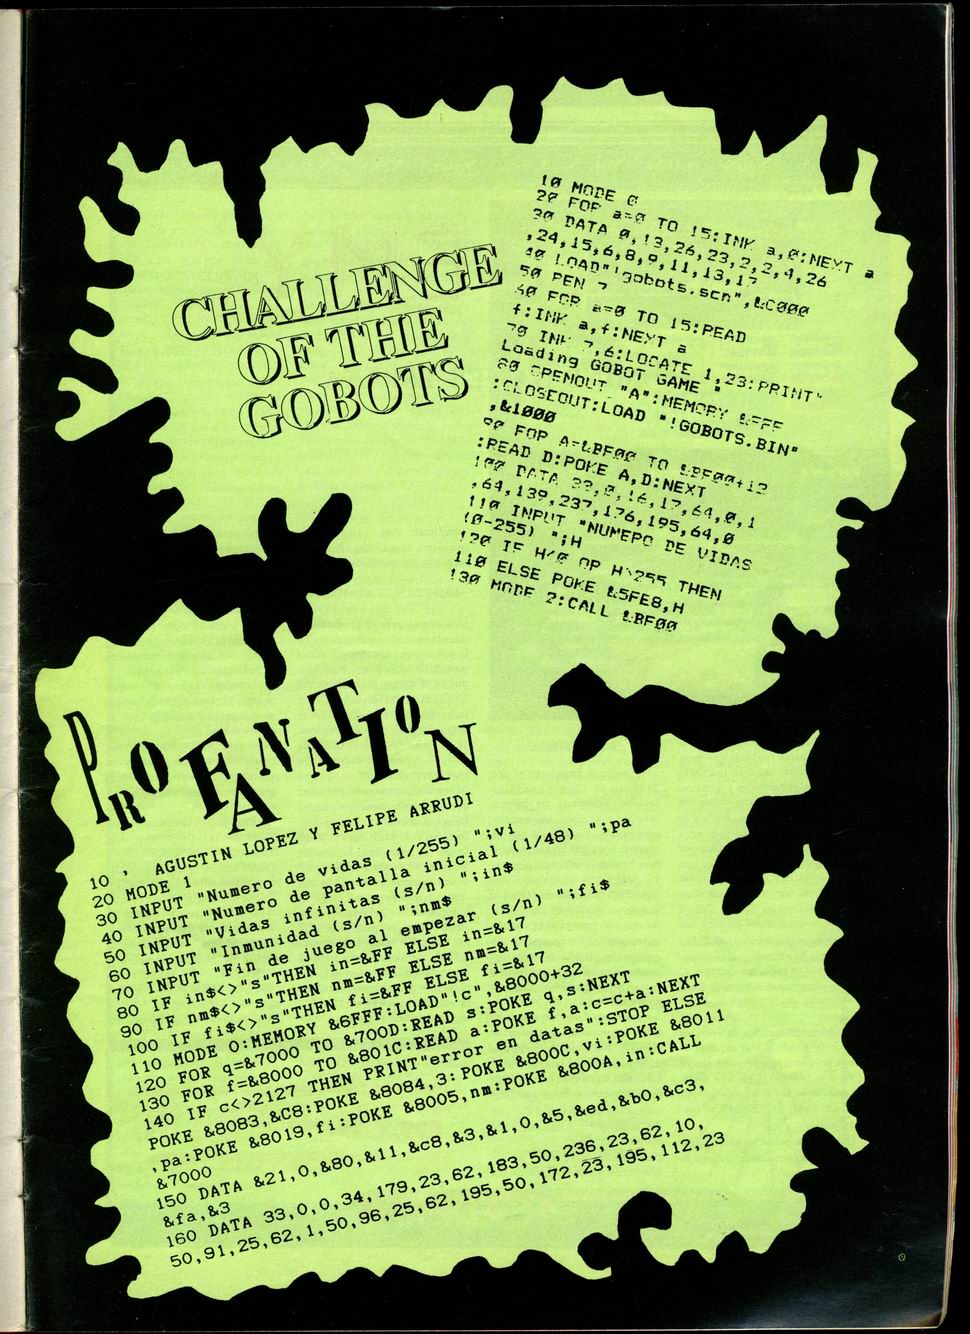 CHALLENGE
OF THE
GOBOTS
10 MODE 0
20 FOR a=0 TO 15:INK a,0:NEXT a
30 DATA 0,13,26,23,2,2,4,26
,24,15,6,8,9,11,13,17
40 LOAD"!gobots.scn",&C000
50 PEN 7
60 FOR a=0 TO 15:READ
f:INK a,f:NEXT a
70 INK 7,6:LOCATE 1,23:PRINT"
Loading GOBOT GAME "
80 OPENOUT "A":MEMORY &FFF
:CLOSEOUT:LOAD "!GOBOTS.BIN"
,&1000
90 FOR A=&BF00 TO &BF00+12
:READ D:POKE A,D:NEXT
100 DATA 33,0,16,17,64,0,1
,64,139,237,176,195,64,0
110 INPUT "NUMERO DE VIDAS
(0-255) ";H
120 IF H<0 OR H>255 THEN
110 ELSE POKE &5FE8,H
130 MODE 2:CALL &BF00
PROFANATION
10 ' AGUSTIN LOPEZ Y FELIPE ARRUDI
20 MODE 1
30 INPUT "Numero de vidas (1/255) ";vi
40 INPUT "Numero de pantalla inicial (1/48) ";pa
50 INPUT "Vidas infinitas (s/n) ";in$
60 INPUT "Inmunidad (s/n) ";nm$
70 INPUT "Fin de juego al empezar (s/n) ";fi$
80 IF in$<>"s"THEN in=&FF ELSE in=&17
90 IF nm$<>"s"THEN nm=&FF ELSE nm=&17
100 IF fi$<>"s"THEN fi=&FF ELSE fi=&17
110 MODE 0:MEMORY &6FFF:LOAD"!c",&8000+32
120 FOR q=&7000 TO &700D:READ s:POKE q,s:NEXT
130 FOR f=&8000 TO &801C:READ a:POKE f,a:c=c+a:NEXT
140 IF c<>2127 THEN PRINT"error en datas":STOP ELSE
POKE &8083,&C8:POKE &8084,3:POKE &800C,vi:POKE &8011
,pa:POKE &8019,fi:POKE &8005,nm:POKE &800A,in:CALL
&7000
150 DATA &21,0,&80,&11,&c8,&3,&1,0,&5,&ed,&b0,&c3,
&fa,&3
160 DATA 33,0,0,34,179,23,62,183,50,236,23,62,10,
50,91,25,62,1,50,96,25,62,195,50,172,23,195,112,23